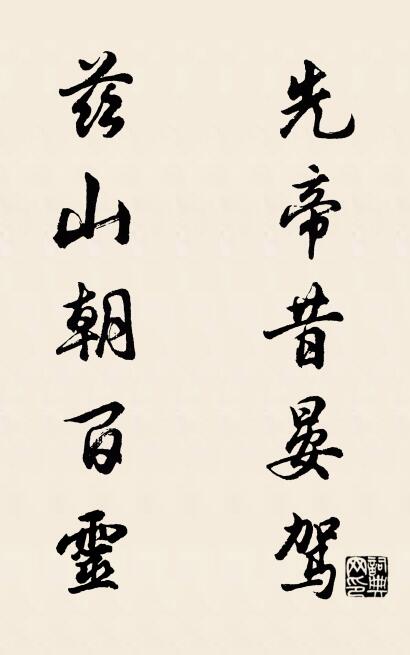 先帝昔晏駕
茲山朝百靈
詞典網印